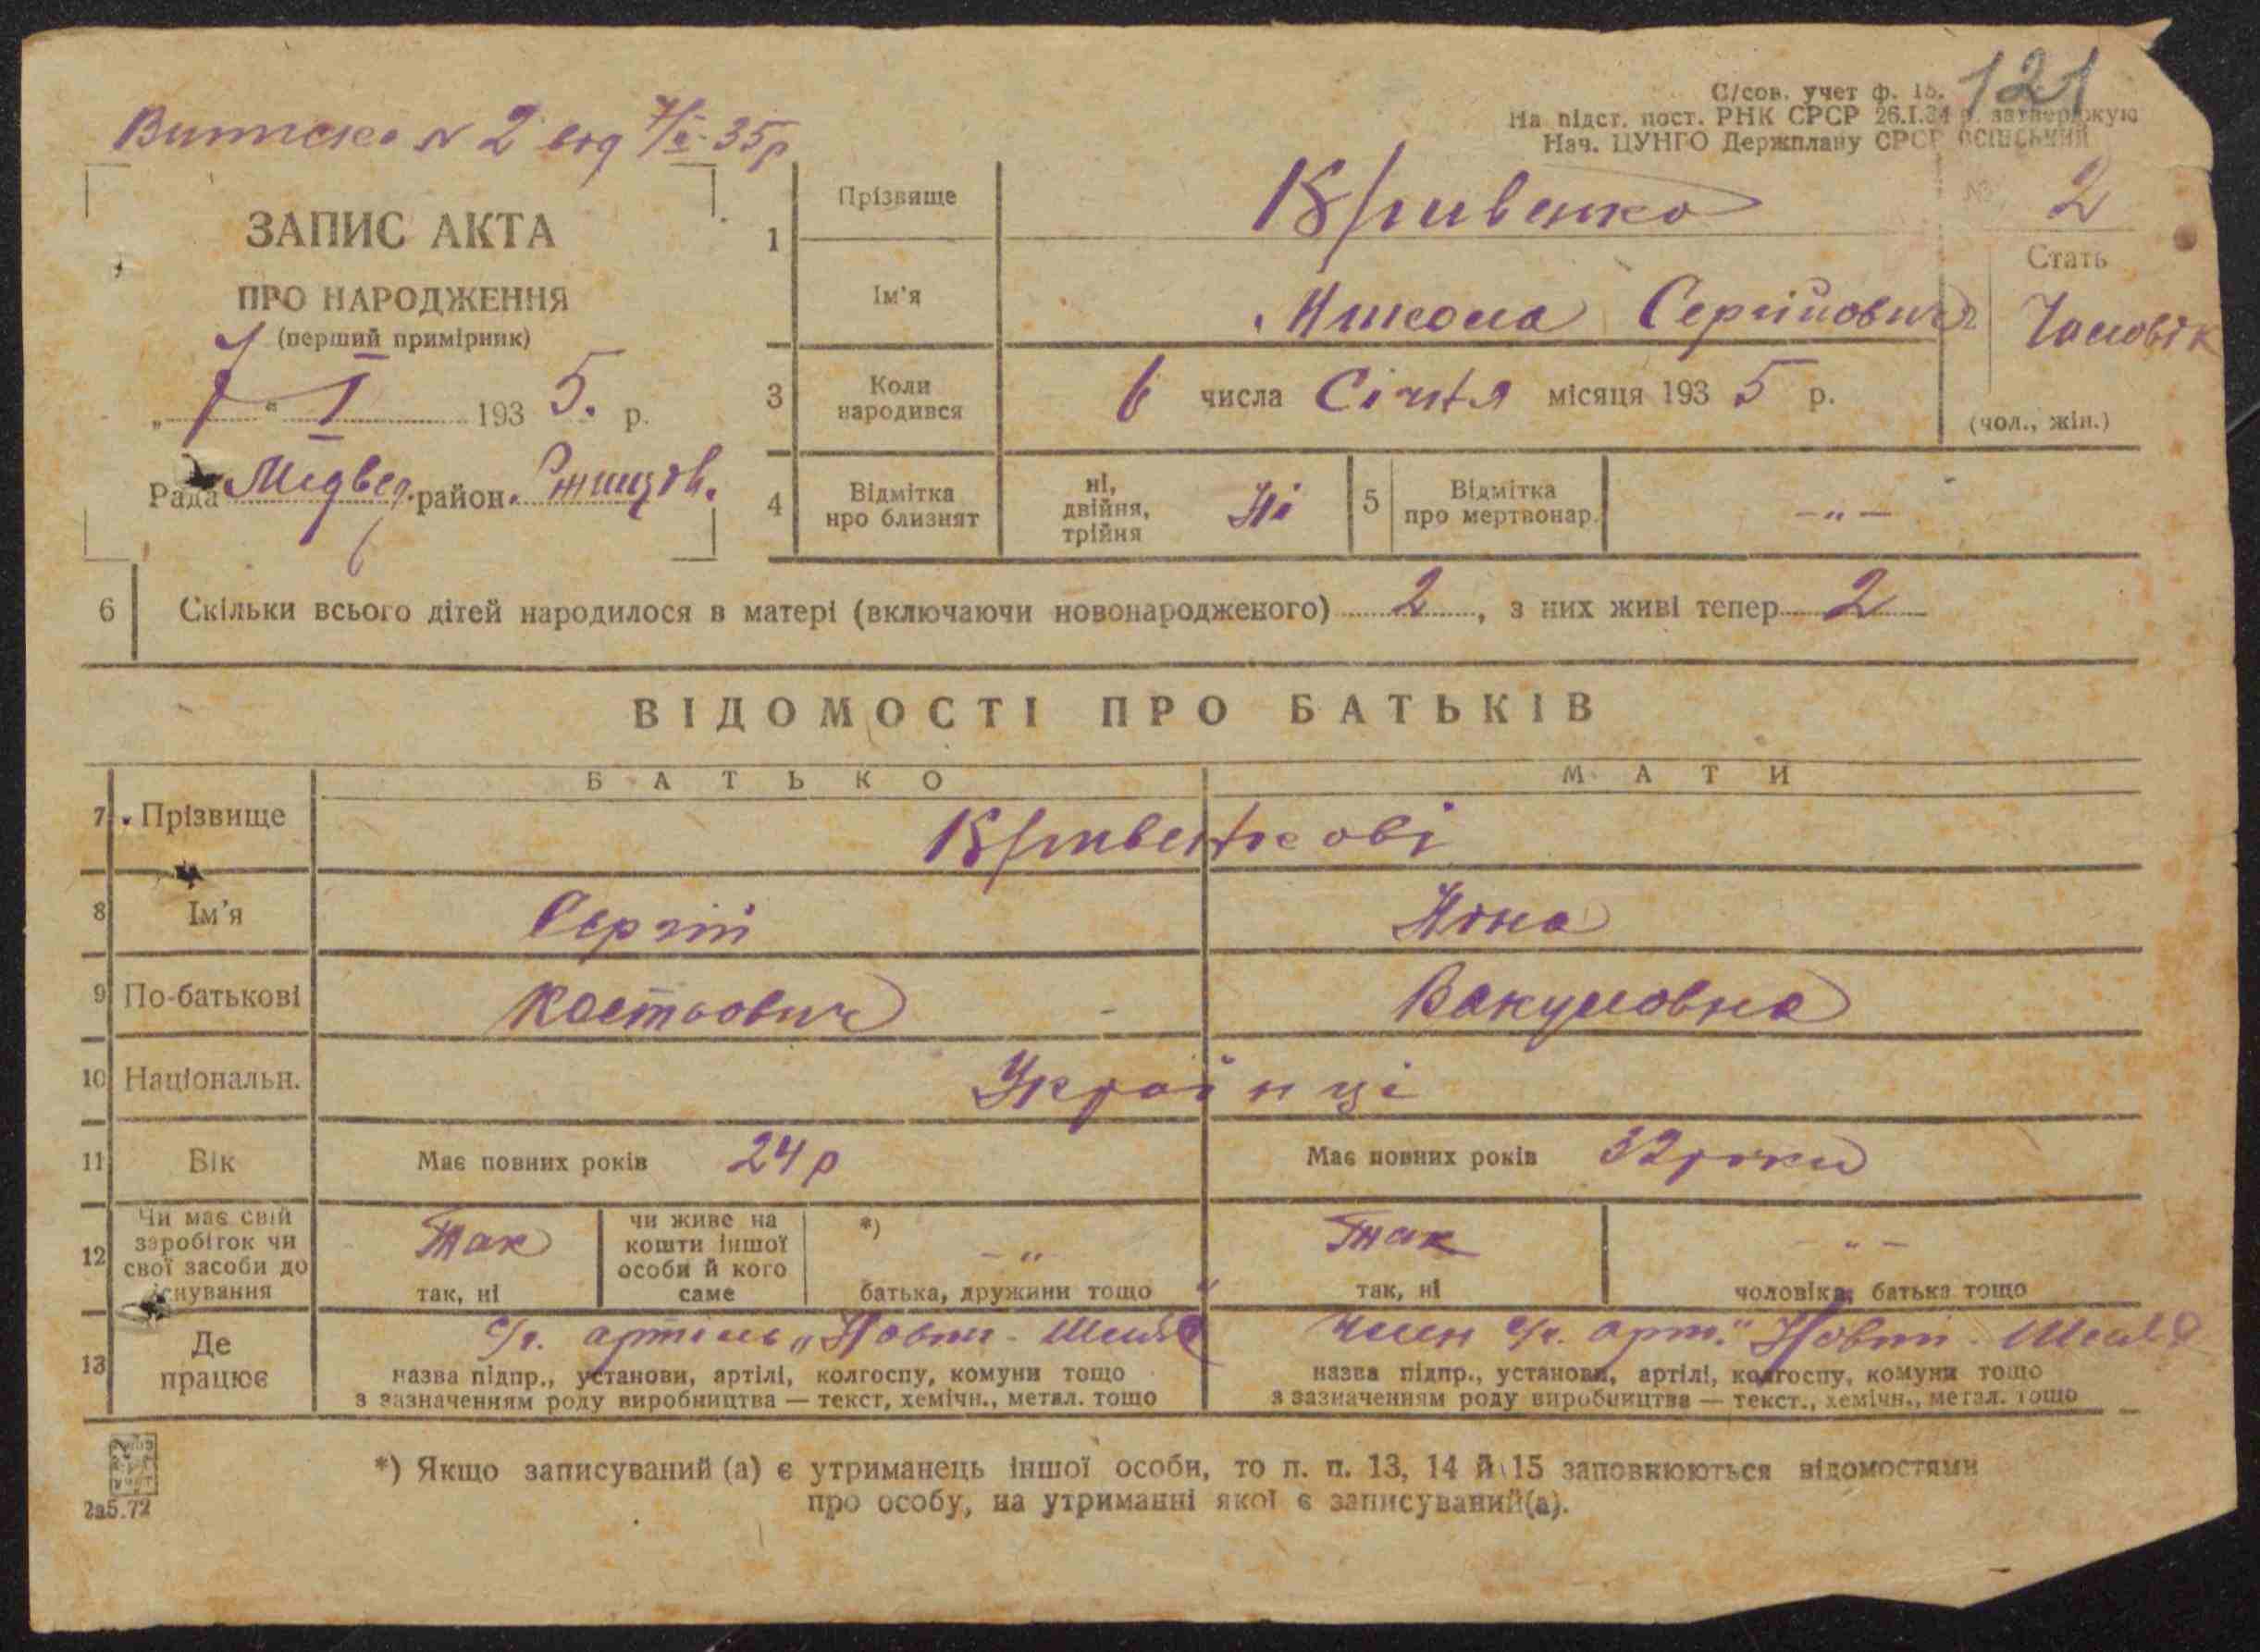 121
С/сов. учет ф. 15.
На підст. пост. РНК СРСР 26.I.34 р. затверджую
Нач. ЦУНГО Держплану СРСР ОСІНСЬКИЙ
Виписка N 2 від 7/I-35р
ЗАПИС АКТА
ПРО НАРОДЖЕННЯ
(перший примірник)
„7“ I 1935. р.
Рада Медвед. район Ржищів.
№ 2
1 Прізвище Кривенко
Ім'я Микола Сергійович
Стать Чаловік
(чол., жін.)
3 Коли народився 6 числа Січня місяця 1935 р.
4 Відмітка про близнят ні, двійня, трійня Ні 5 Відмітка про мертвонар. — „ —
6 Скільки всього дітей народилося в матері (включаючи новонародженого) 2, з них живі тепер 2
ВІДОМОСТІ ПРО БАТЬКІВ
БАТЬКО МАТИ
7 Прізвище Кривенкові
8 Ім'я Сергій Ніна
9 По-батькові Костьович Вакумовна
10 Національн. Українці
11 Вік Має повних років 24 р Має повних років 32 роки
12 Чи має свій заробіток чи свої засоби до існування Так так, ні чи живе на кошти іншої особи й кого саме *) — „ батька, дружини тощо Так так, ні — „ — чоловіка, батька тощо
13 Де працює с/г. артіль „Новий-Шлях Член с/г. арт." Новий-Шлях
назва підпр., установи, артілі, колгоспу, комуни тощо назва підпр., установи, артілі, колгоспу, комуни тощо
з зазначенням роду виробництва — текст, хемічн., метал. тощо з зазначенням роду виробництва — текст., хемічн., метал. тощо
*) Якщо записуваний (а) є утриманець іншої особи, то п. п. 13, 14 й 15 заповнюються відомостями
про особу, на утриманні якої є записуваний(а).
2аб.72